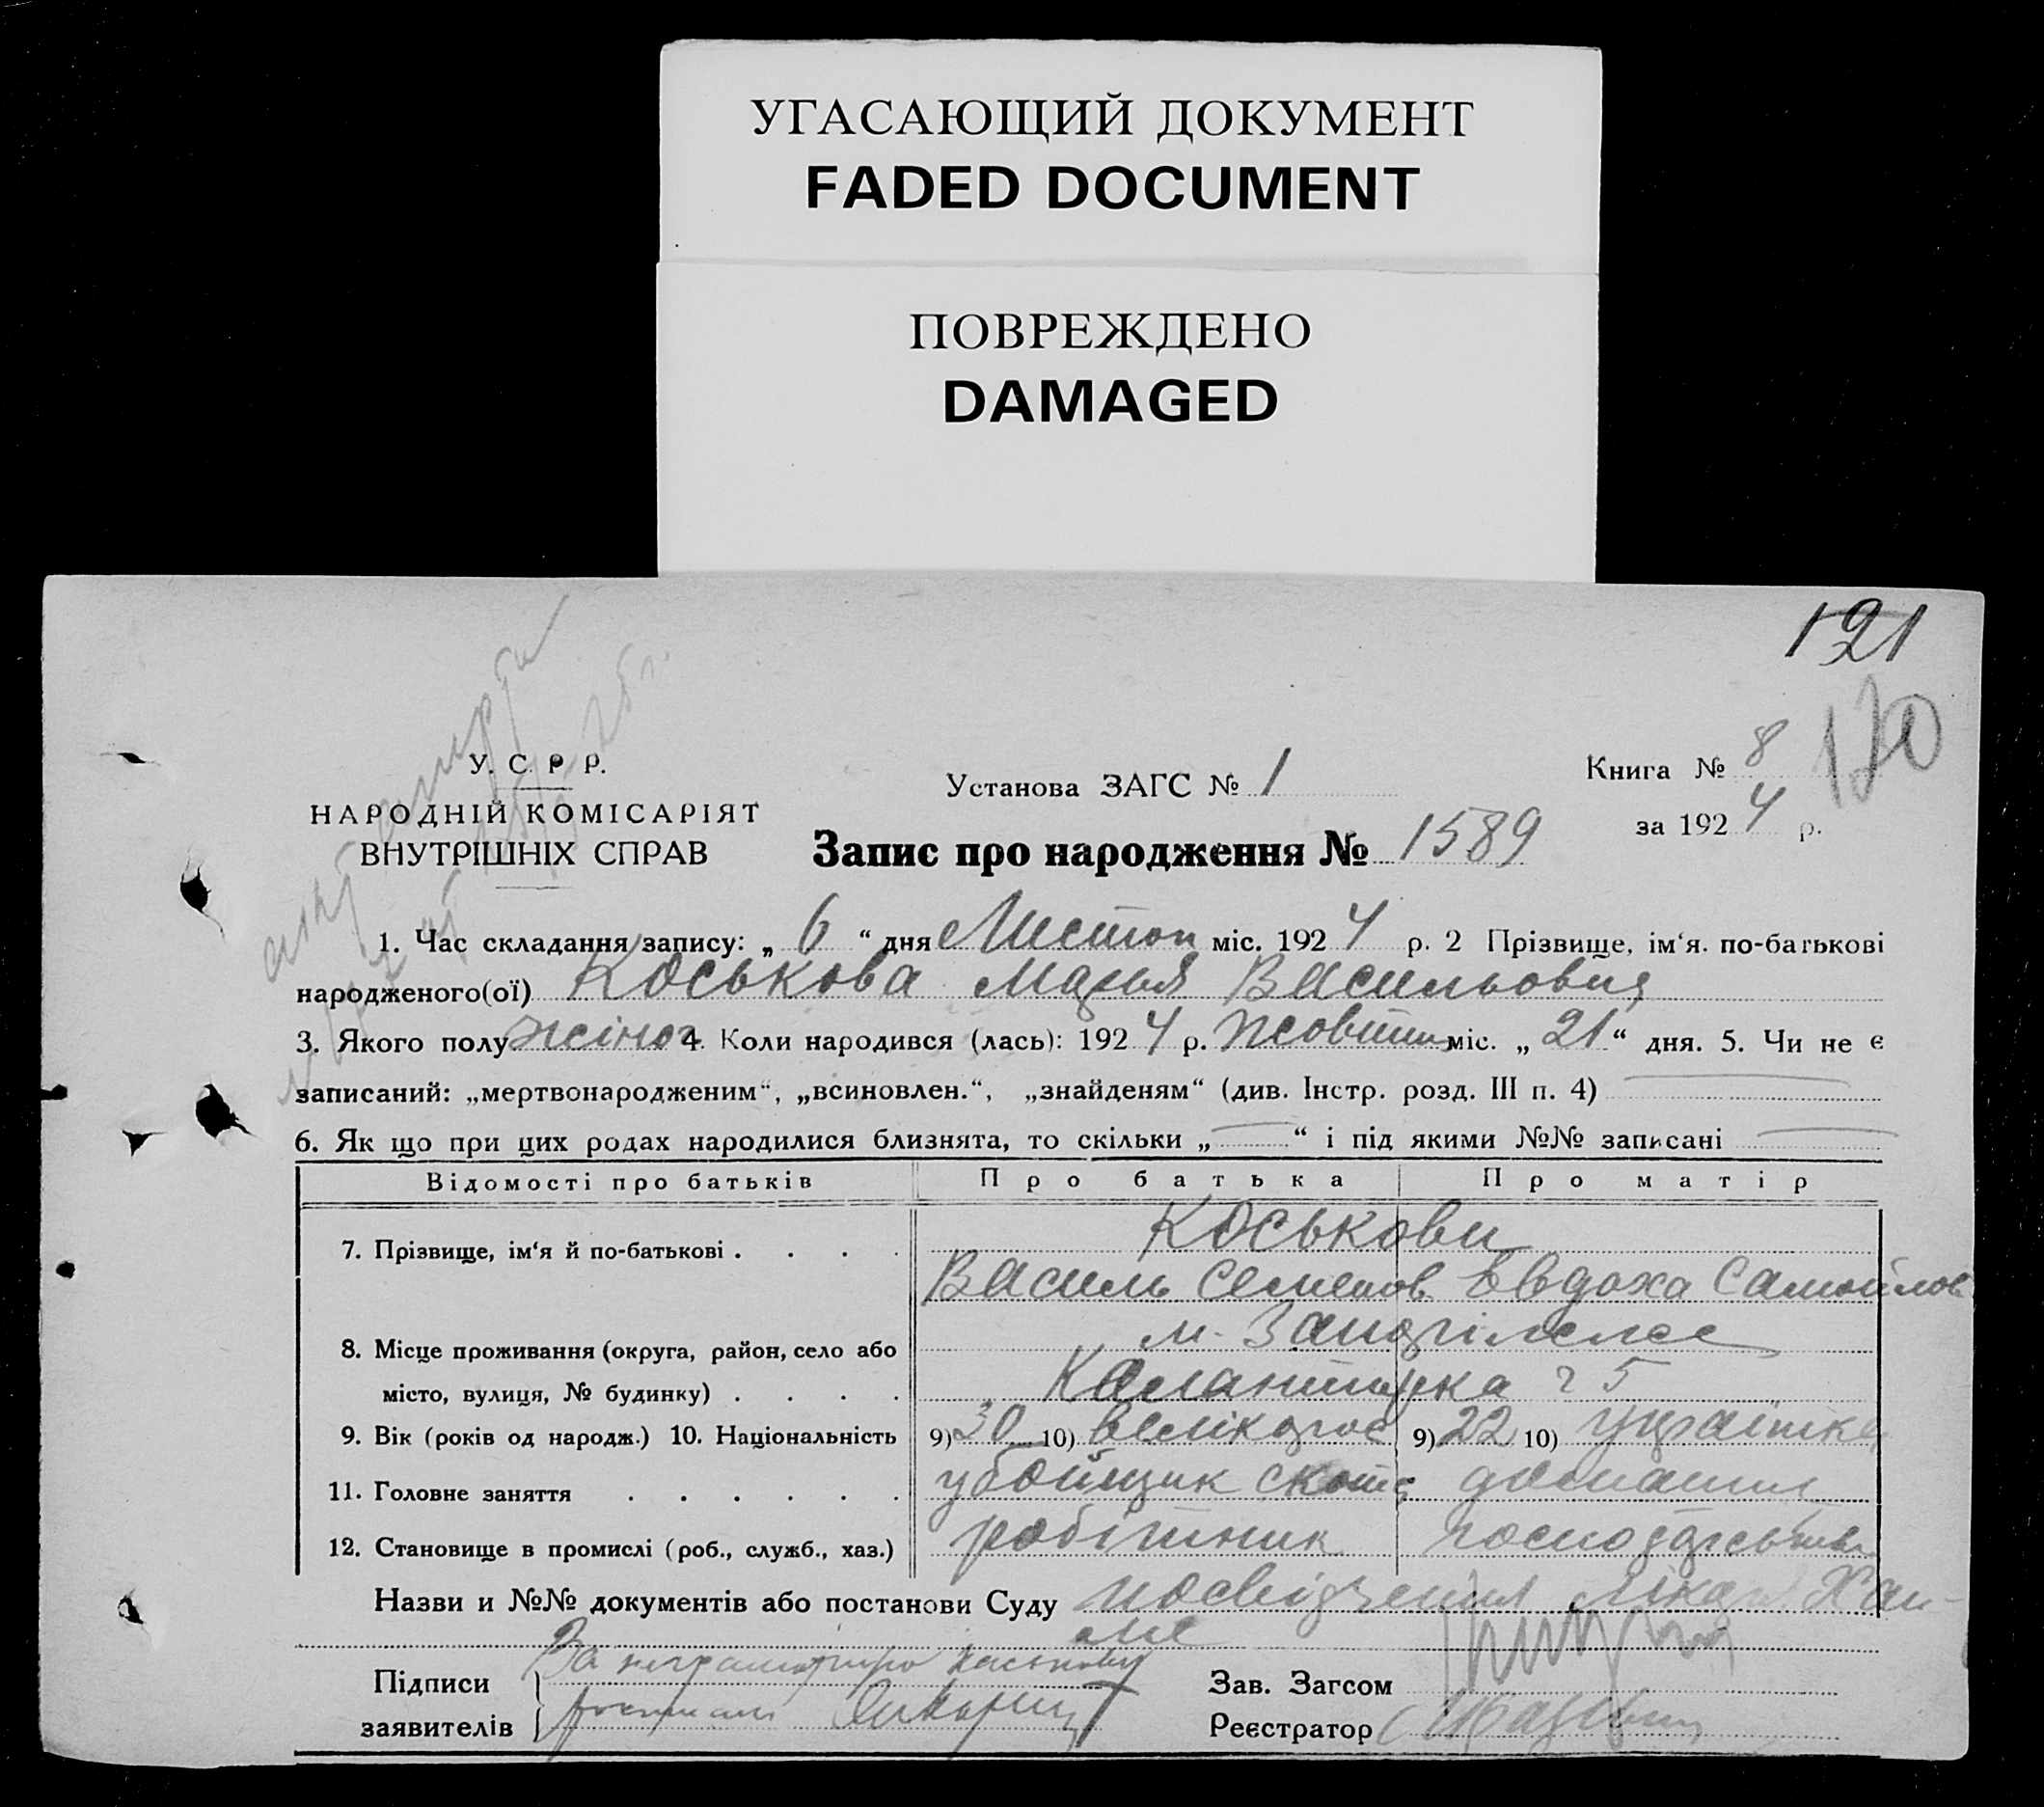 УГАСАЮЩИЙ ДОКУМЕНТ
FADED DOCUMENT
ПОВРЕЖДЕНО
DAMAGED
121
120
У. С. Р. Р.
НАРОДНІЙ КОМІСАРІЯТ
ВНУТРІШНІХ СПРАВ
Установа ЗАГС № 1
Книга № 8
за 1924 р.
Запис про народження № 1589
1. Час складання запису: „ 6 “ дня Листоп міс. 1924 р. 2 Прізвище, ім‘я. по-батькові
народженого(ої) Коськова Марья Васильовна
3. Якого полу жіноч 4. Коли народився (лась): 1924 р. Жовтня міс. „ 21 “ дня. 5. Чи не є
записаний: „мертвонародженим“, „всиновлен.“, „знайденям“ (див. Інстр. розд. III п. 4)
6. Як що при цих родах народилися близнята, то скільки „ “ і під якими №№ записані
Відомості про батьків Про батька Про матір
7. Прізвище, ім‘я й по-батькові . . . . Коськови
Василь Семенов Евдоха Самойлов
8. Місце проживання (округа, район, село або м.
місто, вулиця, № будинку) . . . . Калантирка 5
9. Вік (років од народж.) 10. Національність 9) 30 10) великорос 9) 22 10) українка
11. Головне заняття . . . . . . убойщик скота домашнє
12. Становище в промислі (роб., служб., хаз.) робітник господарство
Назви и №№ документів або постанови Суду посвідчення лікаря
Підписи За неграмотную Каськову
заявителів
Зав. Загсом
Реєстратор